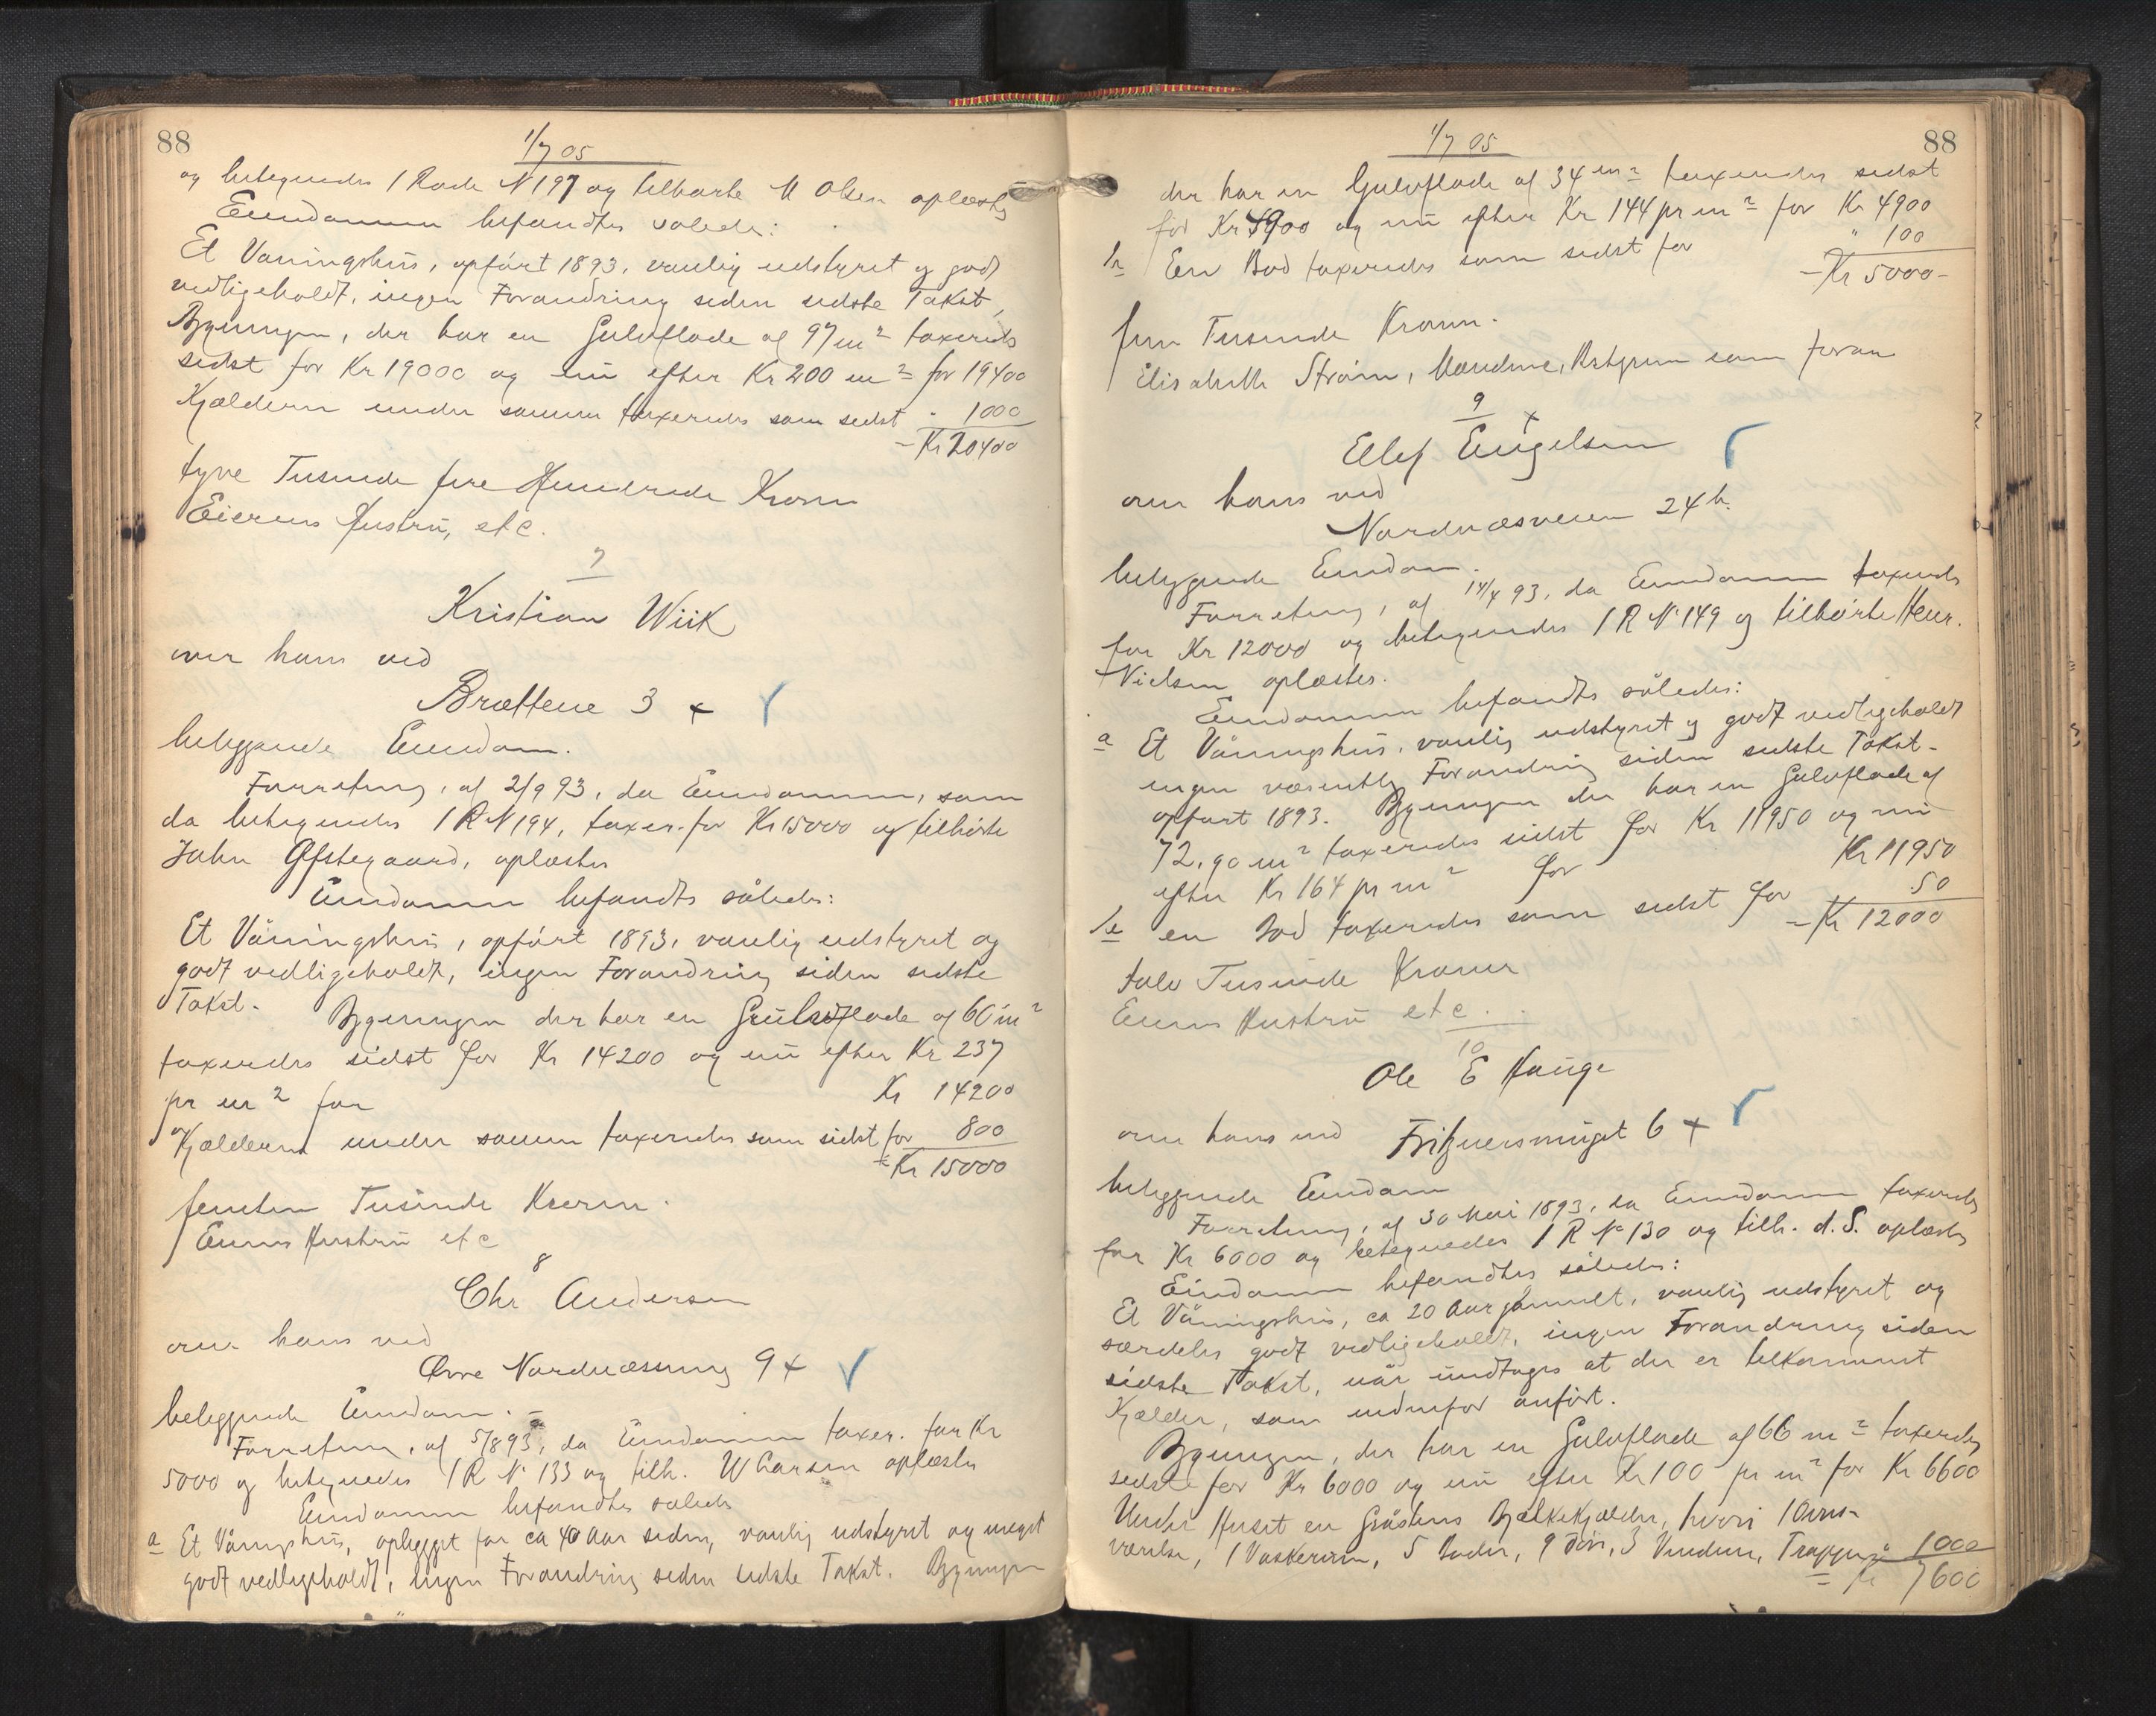 88
1/7 05
og betegnedes 1 Rode N 197 og tilhørte M Olsen oplæstes
Eiendommen befandtes således:
Et Vaningshus, opført 1893, vanlig udstyret og godt
vedligeholdt, ingen Forandring siden sidste Takst,
Bygningen, der har en Gulvflade af 97 m² taxeredes
sidst for Kr 19000 og nu efter Kr 200 m² for 19400
Kjælderen under samme taxeredes som sidst " 1000
- Kr 20400
tyve Tusinde fire Hundrede Kroner
Eierens Hustru, etc.
7
Kristian Wiik
over hans ved
Brættene 3 +
beliggende Eiendom.
Forretning, af 2/9 93, da Eiendommen, som
da betegnedes 1 R N 194, taxer. for Kr 15000 og tilhørte
John Øfstegaard, oplæstes
Eiendommen befandtes således:
Et Våningshus, opført 1893, vanlig udstyret og
godt vedligeholdt, ingen Forandring siden sidste
Takst. Bygningen der har en Gulvflade af 60 m²
taxeredes sidst for Kr 14200 og nu efter Kr 237
pr m² for Kr 14200
og Kjælderen under samme taxeredes som sidst for 800
- Kr 15000
femten Tusinde Kroner.
Eierens Hustru etc
8
Chr Andersen
over hans ved
Øvre Nordnæsvug 9 +
beliggende Eiendom. -
Forretning, af 5/8 93, da Eiendommen taxer. for Kr
5000 og betegnedes 1 R N 133 og tilh. W Larsen oplæstes
Eiendommen befandtes således
a Et Våningshus, oplygget for ca 40 Aar siden, vanlig udstyret og meget
godt vedligeholdt, ingen Forandring siden sidste Takst. Bygningen
88
1/7 05
der har en Gulvflade af 34 m² taxeredes sidst
for Kr 4900 og nu efter Kr 144 pr m² for Kr 4900
b En Bod taxeredes som sidst for " 100
- Kr 5000 -
fem Tusinde Kroner.
Elisabeth Strøm, Mandene, Bestyreren som foran
9
Ellef Engelsen +
over hans ved
Nordnæsveien 24 b.
beliggende Eiendom.
Forretning, af 14/4 93, da Eiendommen taxeredes
for Kr 12000 og betegnedes 1 R N 149 og tilhørte Henr.
Nielsen oplæstes.
Eiendommen befandtes således:
a Et Våningshus, vanlig udstyret og godt vedligeholdt
ingen væsentlig Forandring siden sidste Takst -
opført 1893. Bygningen der har en Gulvflade af
72,90 m² taxeredes sidst for Kr 11950 og nu
efter Kr 164 pr m² for Kr 11950
b en Bod taxeredes som sidst for 50
- Kr 12000
tolv Tusinde Kroner
Eierens Hustru etc.
10
Ole E Hauge
over hans ved Fritznersmuget 6 +
beliggende Eiendom
Forretning, af 30 Mai 1893, da Eiendommen taxeredes
for Kr 6000 og betegnedes 1 R No 130 og tilh. d. S. oplæstes
Eiendommen befandtes således:
Et Våningshus, ca 20 Aar gammelt, vanlig udstyret og
særdeles godt vedligeholdt, ingen Forandring siden
sidste Takst, når undtages at der er tilkommet
Kjælder, som nedenfor anført.
Bygningen, der har en Gulvflade af 66 m² taxeredes
sidst for Kr 6000 og nu efter Kr 100 pr m² for Kr 6600
Under Huset en Gråstens Bjælkekjælder, hvori 1
værelse, 1 Vaskerum, 5 Boder, 9 Døre, 3 Vinduer, Trapper 1000
= Kr 7600